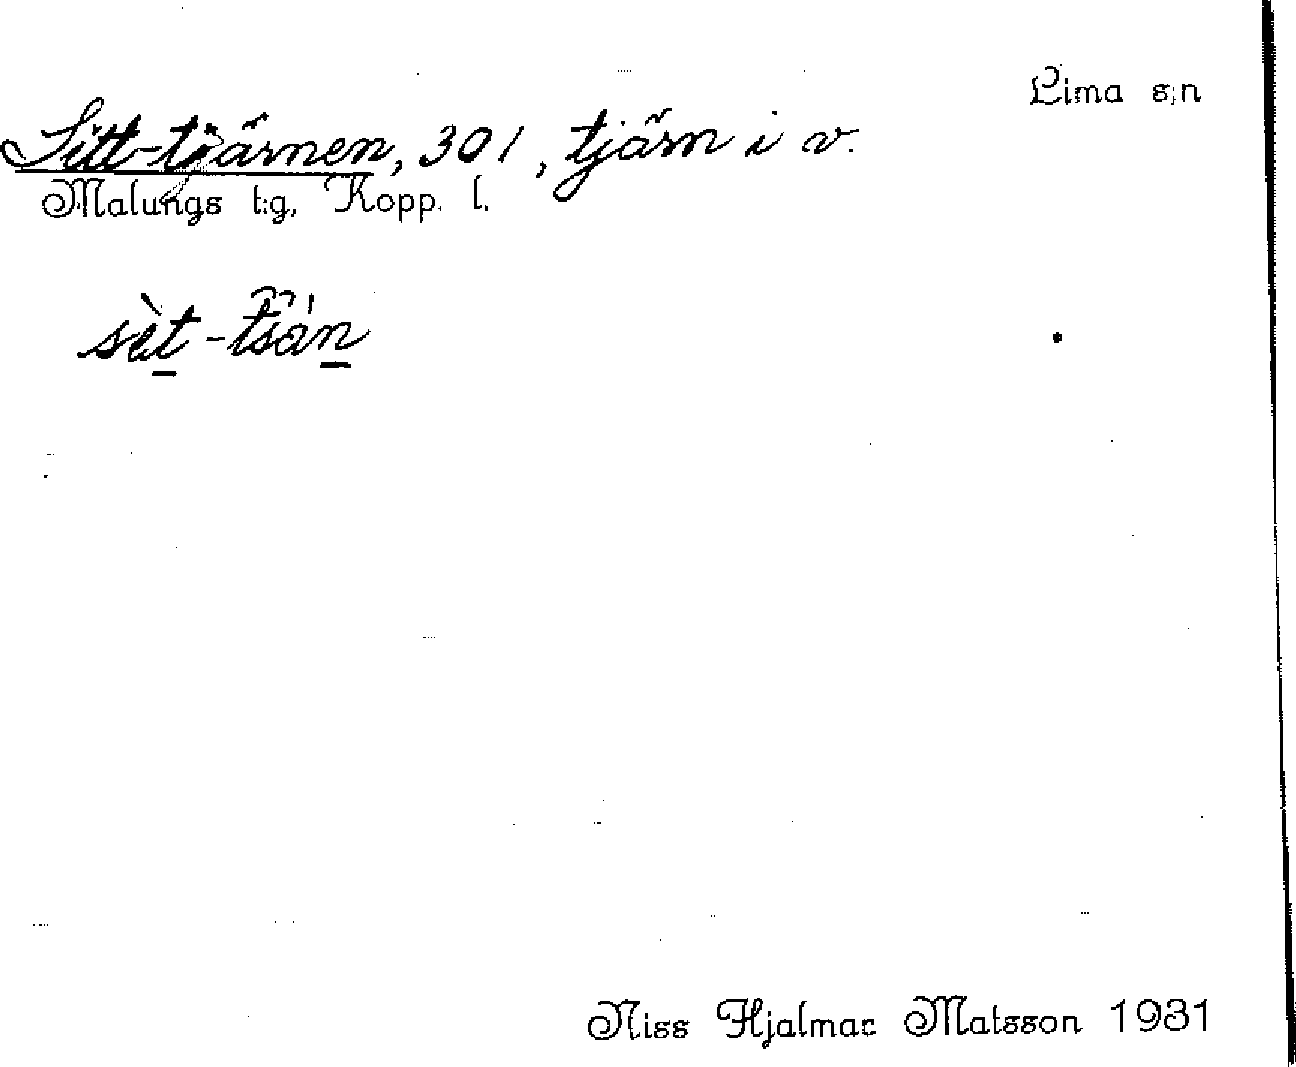 Lima s:n
Sitt-tjärnen, 301, tjärn i v.
Malungs t:g, Kopp. l.
sèt - tsán
Niss Hjalmar Matsson 1931